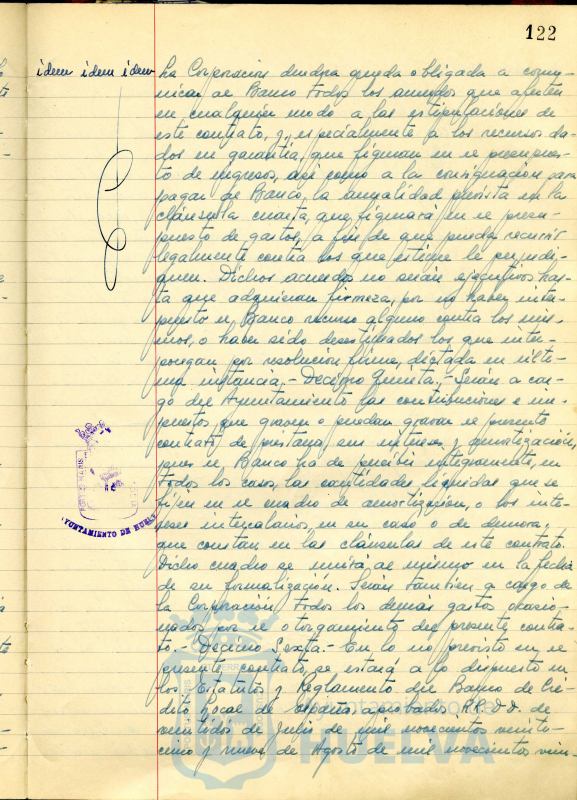 122
idem idem idem
la Corporacion deudora queda obligada a comu-
nicar al Banco todos los acuerdos que afecten
en cualquier modo a las estipulaciones de
este contrato, y, especialmente a los recursos da-
dos en garantía, que figuran en el presupues-
to de ingresos, así como a la consignación para
pagar al Banco, la anualidad prevista en la
cláusula cuarta, que figurará en el presu-
puesto de gastos, a fin de que pueda recurrir
legalmente contra los que estime le perjudi-
quen. Dichos acuerdos no serán ejecutivos has-
ta que adquieran firmeza, por no haber inter-
puesto el Banco recurso alguno contra los mis-
mos, o haber sido desestimados los que inter-
pongan por resolución firme, dictada en últi-
ma instancia.- Decimo Quinta.- Serán a car-
go del Ayuntamiento las contribuciones e im-
puestos que graven o puedan gravar el presente
contrato de préstamo, sus intereses y amortización,
pues el Banco ha de percibir integramente, en
todos los casos, las cantidades líquidas que se
fijen en el cuadro de amortización, o los inte-
reses intercalarios, en su caso o de demora,
que constan en las cláusulas de este contrato.
Dicho cuadro se unirá al mismo en la fecha
de su formalización. Serán tambien a cargo de
la Corporación todos los demás gastos ocasio-
nados por el otorgamiento del presente contra-
to.- Decimo Sexta.- En lo no previsto en el
presente contrato, se estará a lo dispuesto en
los Estatutos y Reglamento del Banco de Cré-
dito Local de España, aprobados RR.DD. de
veintidos de Julio de mil novecientos veinti-
cinco y nueve de Agosto de mil novecientos vein-
AYUNTAMIENTO DE HUELVA
HUELVA